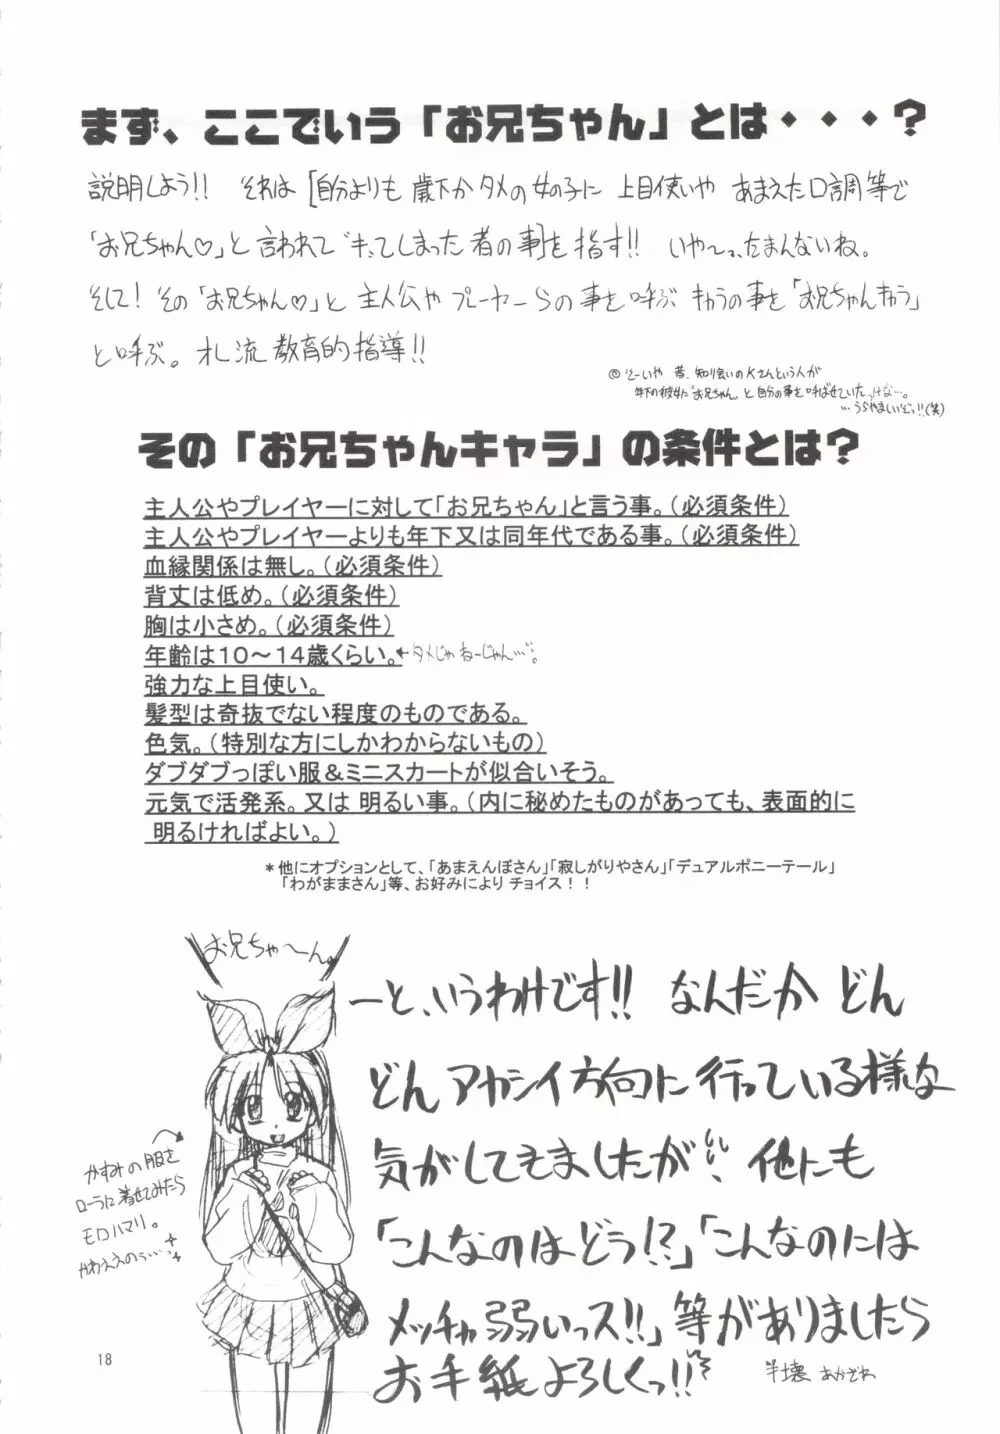 まず、ここでいう「お兄ちゃん」とは・・・?
説明しよう!! それは[自分よりも 歳下か タメの 女の子に 上目使いや あまえた口調等で
「お兄ちゃん♡」と 言われて ｷてしまった 者の事]を 指す!! いや〜っ、たまんないね。
そして! その「お兄ちゃん♡」と 主人公や プレーヤーらの 事を 呼ぶ キャラの事を「お兄ちゃんキャラ」
と呼ぶ。オレ流 教育的指導!!
◎そーいや 昔、知り会いのKさんという人が
年下の彼女に"お兄ちゃん"と 自分の事を 呼ばせていたっけな…。
…うらやましいぞっ!!(笑)
その「お兄ちゃんキャラ」の条件とは?
主人公やプレイヤーに対して「お兄ちゃん」と言う事。(必須条件)
主人公やプレイヤーよりも年下又は同年代である事。(必須条件)
血縁関係は無し。(必須条件)
背丈は低め。(必須条件)
胸は小さめ。(必須条件)
年齢は10〜14歳くらい。←タメじゃねーじゃん…。
強力な上目使い。
髪型は奇抜でない程度のものである。
色気。(特別な方にしかわからないもの)
ダブダブっぽい服&ミニスカートが似合いそう。
元気で活発系。又は 明るい事。(内に秘めたものがあっても、表面的に
明るければよい。)
*他にオプションとして、「あまえんぼさん」「寂しがりやさん」「デュアルポニーテール」
「わがままさん」等、お好みにより チョイス!!
お兄ちゃ〜ん。
ーと、いうわけです!! なんだか どん
どん アヤシイ方向に 行っている様な
気がしてきましたが 他にも
「こんなのは どう!?」「こんなのには
メッチャ 弱いっス!!」等が ありましたら
お手紙 よろしくっ!!
半壊 あかざわ
かすみの服を
ローラに着せてみたら
モロハマリ。
かわええのぅ…
18